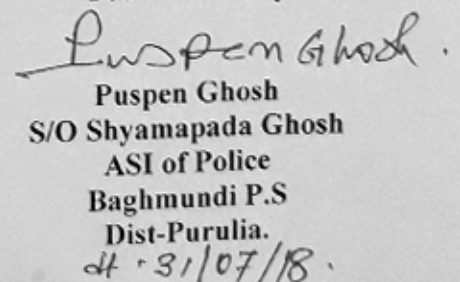 Puspen Ghosh.
Puspen Ghosh
S/O Shyamapada Ghosh
ASI of Police
Baghmundi P.S
Dist-Purulia.
dt. 31/07/18.